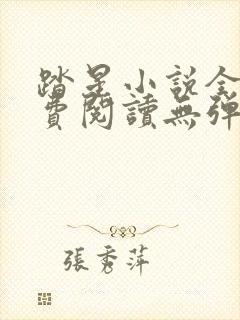 踏星小说全
費閱讀無彈
張秀萍